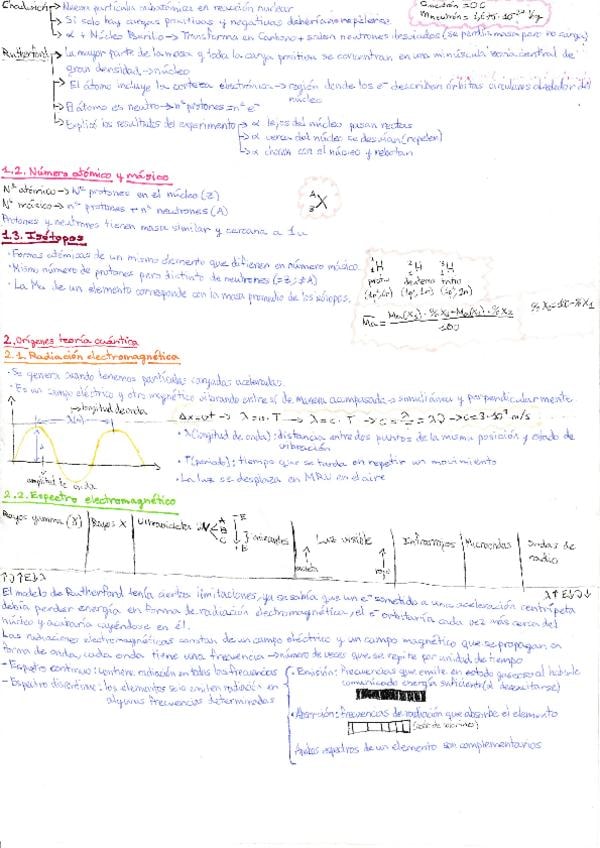 Chadwick → Nueva partícula subatómica en reacción nuclear
→ Si solo hay cargas positivas y negativas deberían repelerse
→ α + Núcleo Berilio → Transforma en Carbono + salen neutrones desviados (se perdía masa pero no carga)
Qneutrón = 0 C
mneutrón = 1,675·10⁻²⁷ kg
Rutherford → La mayor parte de la masa y toda la carga positiva se concentran en una minúscula región central de
gran densidad → núcleo
→ El átomo incluye la corteza electrónica → región donde los e⁻ describen órbitas circulares alrededor del
núcleo
→ El átomo es neutro → nº protones = nº e⁻
→ Explicó los resultados del experimento → α lejos del núcleo pasan rectas
→ α cerca del núcleo se desvían (repelen)
→ α chocan con el núcleo y rebotan
1.2. Número atómico y másico
Nº atómico → Nº protones en el núcleo (Z)
Nº másico → nº protones + nº neutrones (A)
A
Z X
Protones y neutrones tienen masa similar y cercana a 1u
1.3. Isótopos
· Formas atómicas de un mismo elemento que difieren en número másico.
· Mismo número de protones pero distinto de neutrones (=Z; ≠A)
· La Ma de un elemento corresponde con la masa promedio de los isótopos.
¹₁H ²₁H ³₁H
protio deuterio tritio
(1p⁺, 1n) (1p⁺, 2n)
Ma = Ma(X₁)·%X₁+Ma(X₂)·%X₂
100
%X₂=100-%X₁
2. Orígenes teoría cuántica
2.1. Radiación electromagnética
· Se genera cuando tenemos partículas cargadas aceleradas.
· Es un campo eléctrico y otro magnético vibrando entre sí de manera acompasada → simultánea y perpendicularmente.
→ longitud de onda
λ(m)
amplitud de onda
Δx = v·t → λ = v·T → λ = c·T → c = λ/T = λν → c = 3·10⁸ m/s
· λ (longitud de onda): distancia entre dos puntos de la misma posición y estado de
vibración
· T (periodo): tiempo que se tarda en repetir un movimiento
· La luz se desplaza en MRU en el aire
2.2. Espectro electromagnético
Rayos gamma (γ) | Rayos X | Ultravioletas UV A B C -E +E ionizantes | Luz visible | Infrarrojos | Microondas | Ondas de
radio
violeta rojo
El modelo de Rutherford tenía ciertas limitaciones, ya se sabía que un e⁻ sometido a una aceleración centrípeta
debía perder energía en forma de radiación electromagnética, el e⁻ orbitaría cada vez más cerca del
núcleo y acabaría cayéndose en él.
Las radiaciones electromagnéticas constan de un campo eléctrico y un campo magnético que se propagan en
forma de onda, cada onda tiene una frecuencia → número de veces que se repite por unidad de tiempo
- Espectro continuo: contiene radiación en todas las frecuencias
- Espectro discontinuo: los elementos solo emiten radiación en
algunas frecuencias determinadas
· Emisión: Frecuencias que emite en estado gaseoso al habérsele
comunicado energía suficiente (al descargarse)
· Absorción: frecuencias de radiación que absorbe el elemento
Ambos espectros de un elemento son complementarios